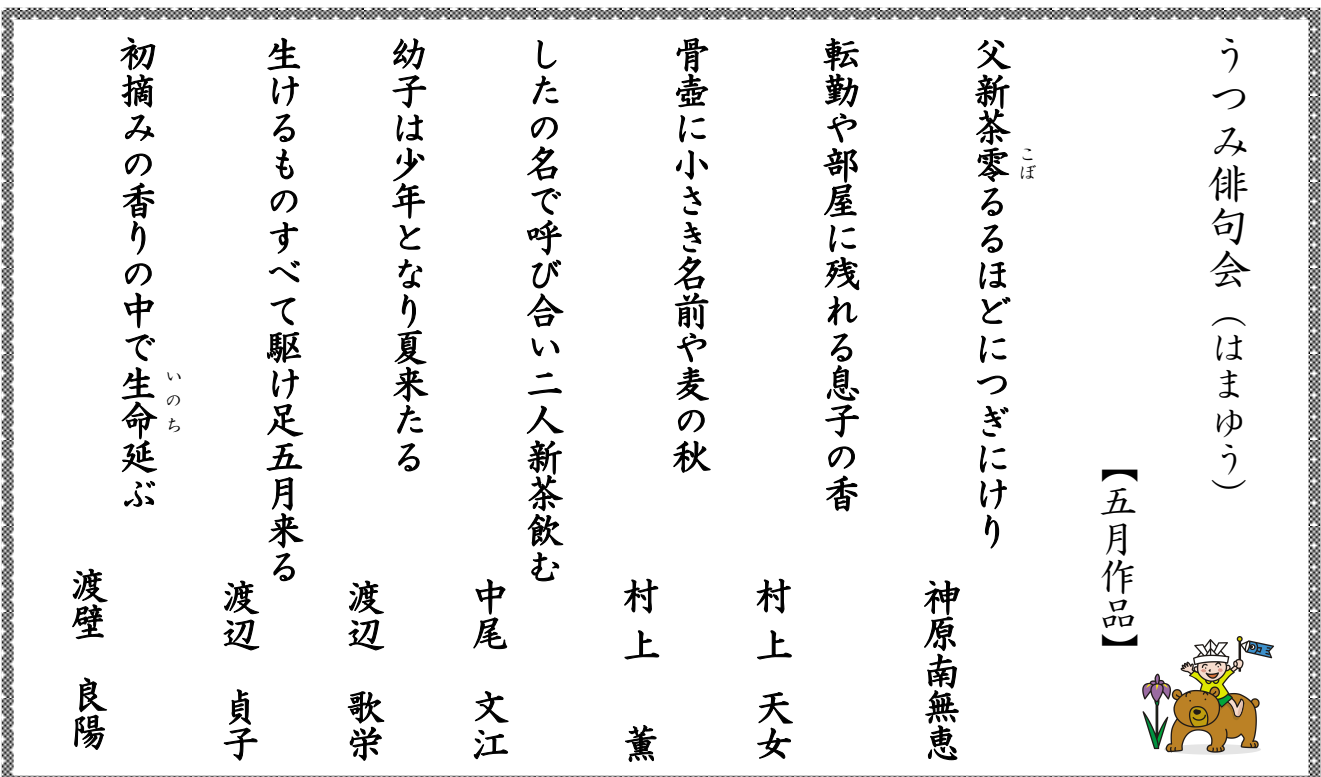 うつみ俳句会（はまゆう）
【五月作品】
父新茶零るるほどにつぎにけり
こぼ
神原南無恵
転勤や部屋に残れる息子の香
村上 天女
骨壺に小さき名前や麦の秋
村上 薫
したの名で呼び合い二人新茶飲む
中尾 文江
幼子は少年となり夏来たる
渡辺 歌栄
生けるものすべて駆け足五月来る
渡辺 貞子
初摘みの香りの中で生命延ぶ
いのち
渡壁 良陽